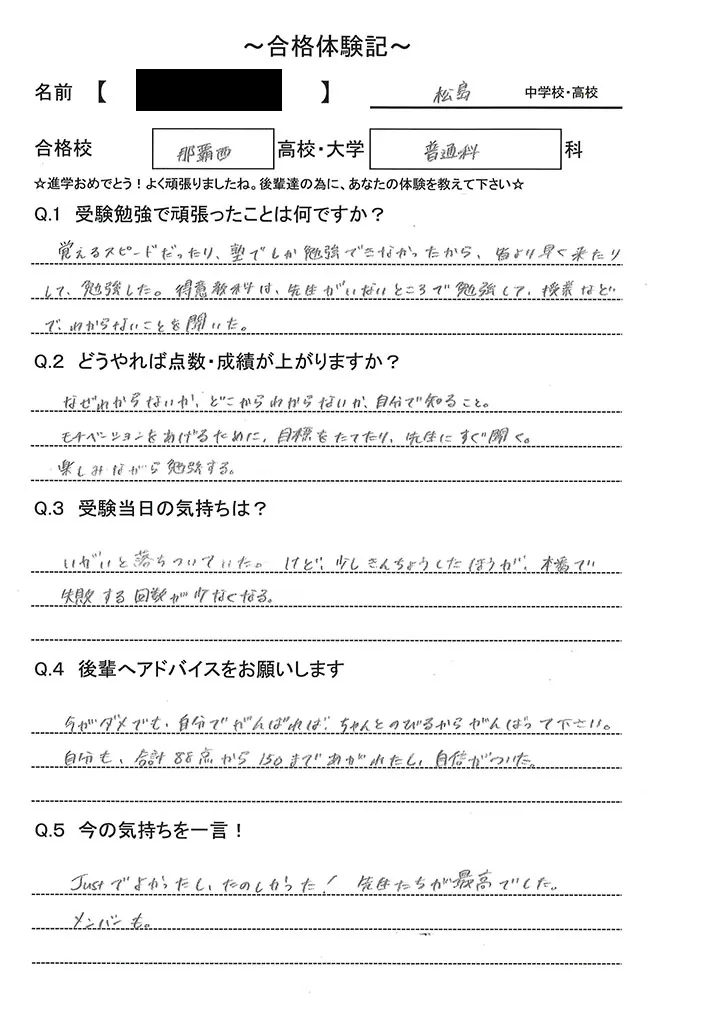 ～合格体験記～
名前 【 】 松島 中学校・高校
合格校 那覇西 高校・大学 普通科 科
☆進学おめでとう！よく頑張りましたね。後輩達の為に、あなたの体験を教えて下さい☆
Q.1 受験勉強で頑張ったことは何ですか？
覚えるスピードだったり、塾でしか勉強できなかったから、皆より早く来たり
して、勉強した。得意教科は、先生がいないところで勉強して、授業などど
で、わからないことを聞いた。
Q.2 どうやれば点数・成績が上がりますか？
なぜわからないか、どこからわからないか、自分で知ること。
モチベーションをあげるために、目標をたてたり、先生にすぐ聞く。
楽しみながら勉強する。
Q.3 受験当日の気持ちは？
いがいと落ちついていた。けど、少しきんちょうしたほうが、本番で
失敗する回数が少なくなる。
Q.4 後輩へアドバイスをお願いします
今がダメでも、自分でがんばれば、ちゃんとのびるからがんばって下さい。
自分も、合計88点から150まであがれたし、自信がついた。
Q.5 今の気持ちを一言！
Justでよかったし、たのしかった！ 先生たちが最高でした。
メンバーも。